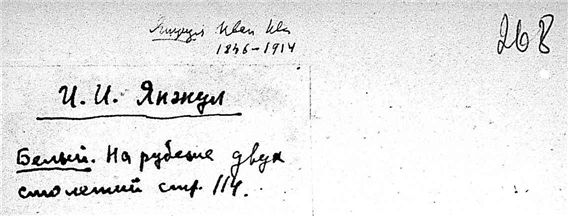 Янжул Иван Ив
1846-1914
268
И. И. Янжул
Белый. На рубеже двух
столетий стр. 114.